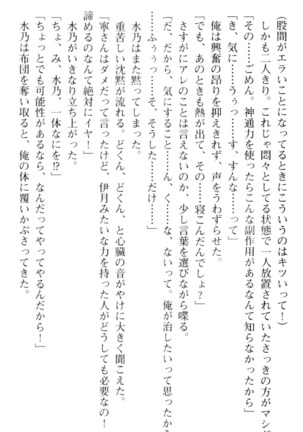 （股間がエラいことになってるときにこういうのはキツいって！）
しかも二人きり。これじゃ悶々としてる状態で一人放置されていたさっきの方がマシだ。
「その……ごめん。神通力を使ったらこんな副作用があるなんて知らなかったから」
「き、気に……うぅっ……す、すんな……って」
俺は興奮の昂りを抑えきれず、声をうわずらせた。
「でも、あのときも熱が出て、その……寝こんだんでしょ？」
さすがにアレのことは言えないのか、少し言葉を選びながら喋る。
「だ、だから、気にすること……ん、く……な、ないって。俺が治したいって思ったから
……ふぅぅっ……そ、そうした……だけ……」
水乃はまた黙ってしまった。
重苦しい沈黙が流れる。どくん、どくん、と心臓の音がやけに大きく聞こえた。
「寧さんはダメだって言ったけど、伊月みたいな力を持った人がどうしても必要なの！
諦めるのなんて絶対にイヤ！」
水乃がいきなり立ち上がった。
「ちょ、み、水乃、一体なにを!?」
「ちょっとでも可能性があるなら、なんだってやってやるんだから！」
水乃は布団を奪い取ると、俺の体に覆いかぶさってきた。